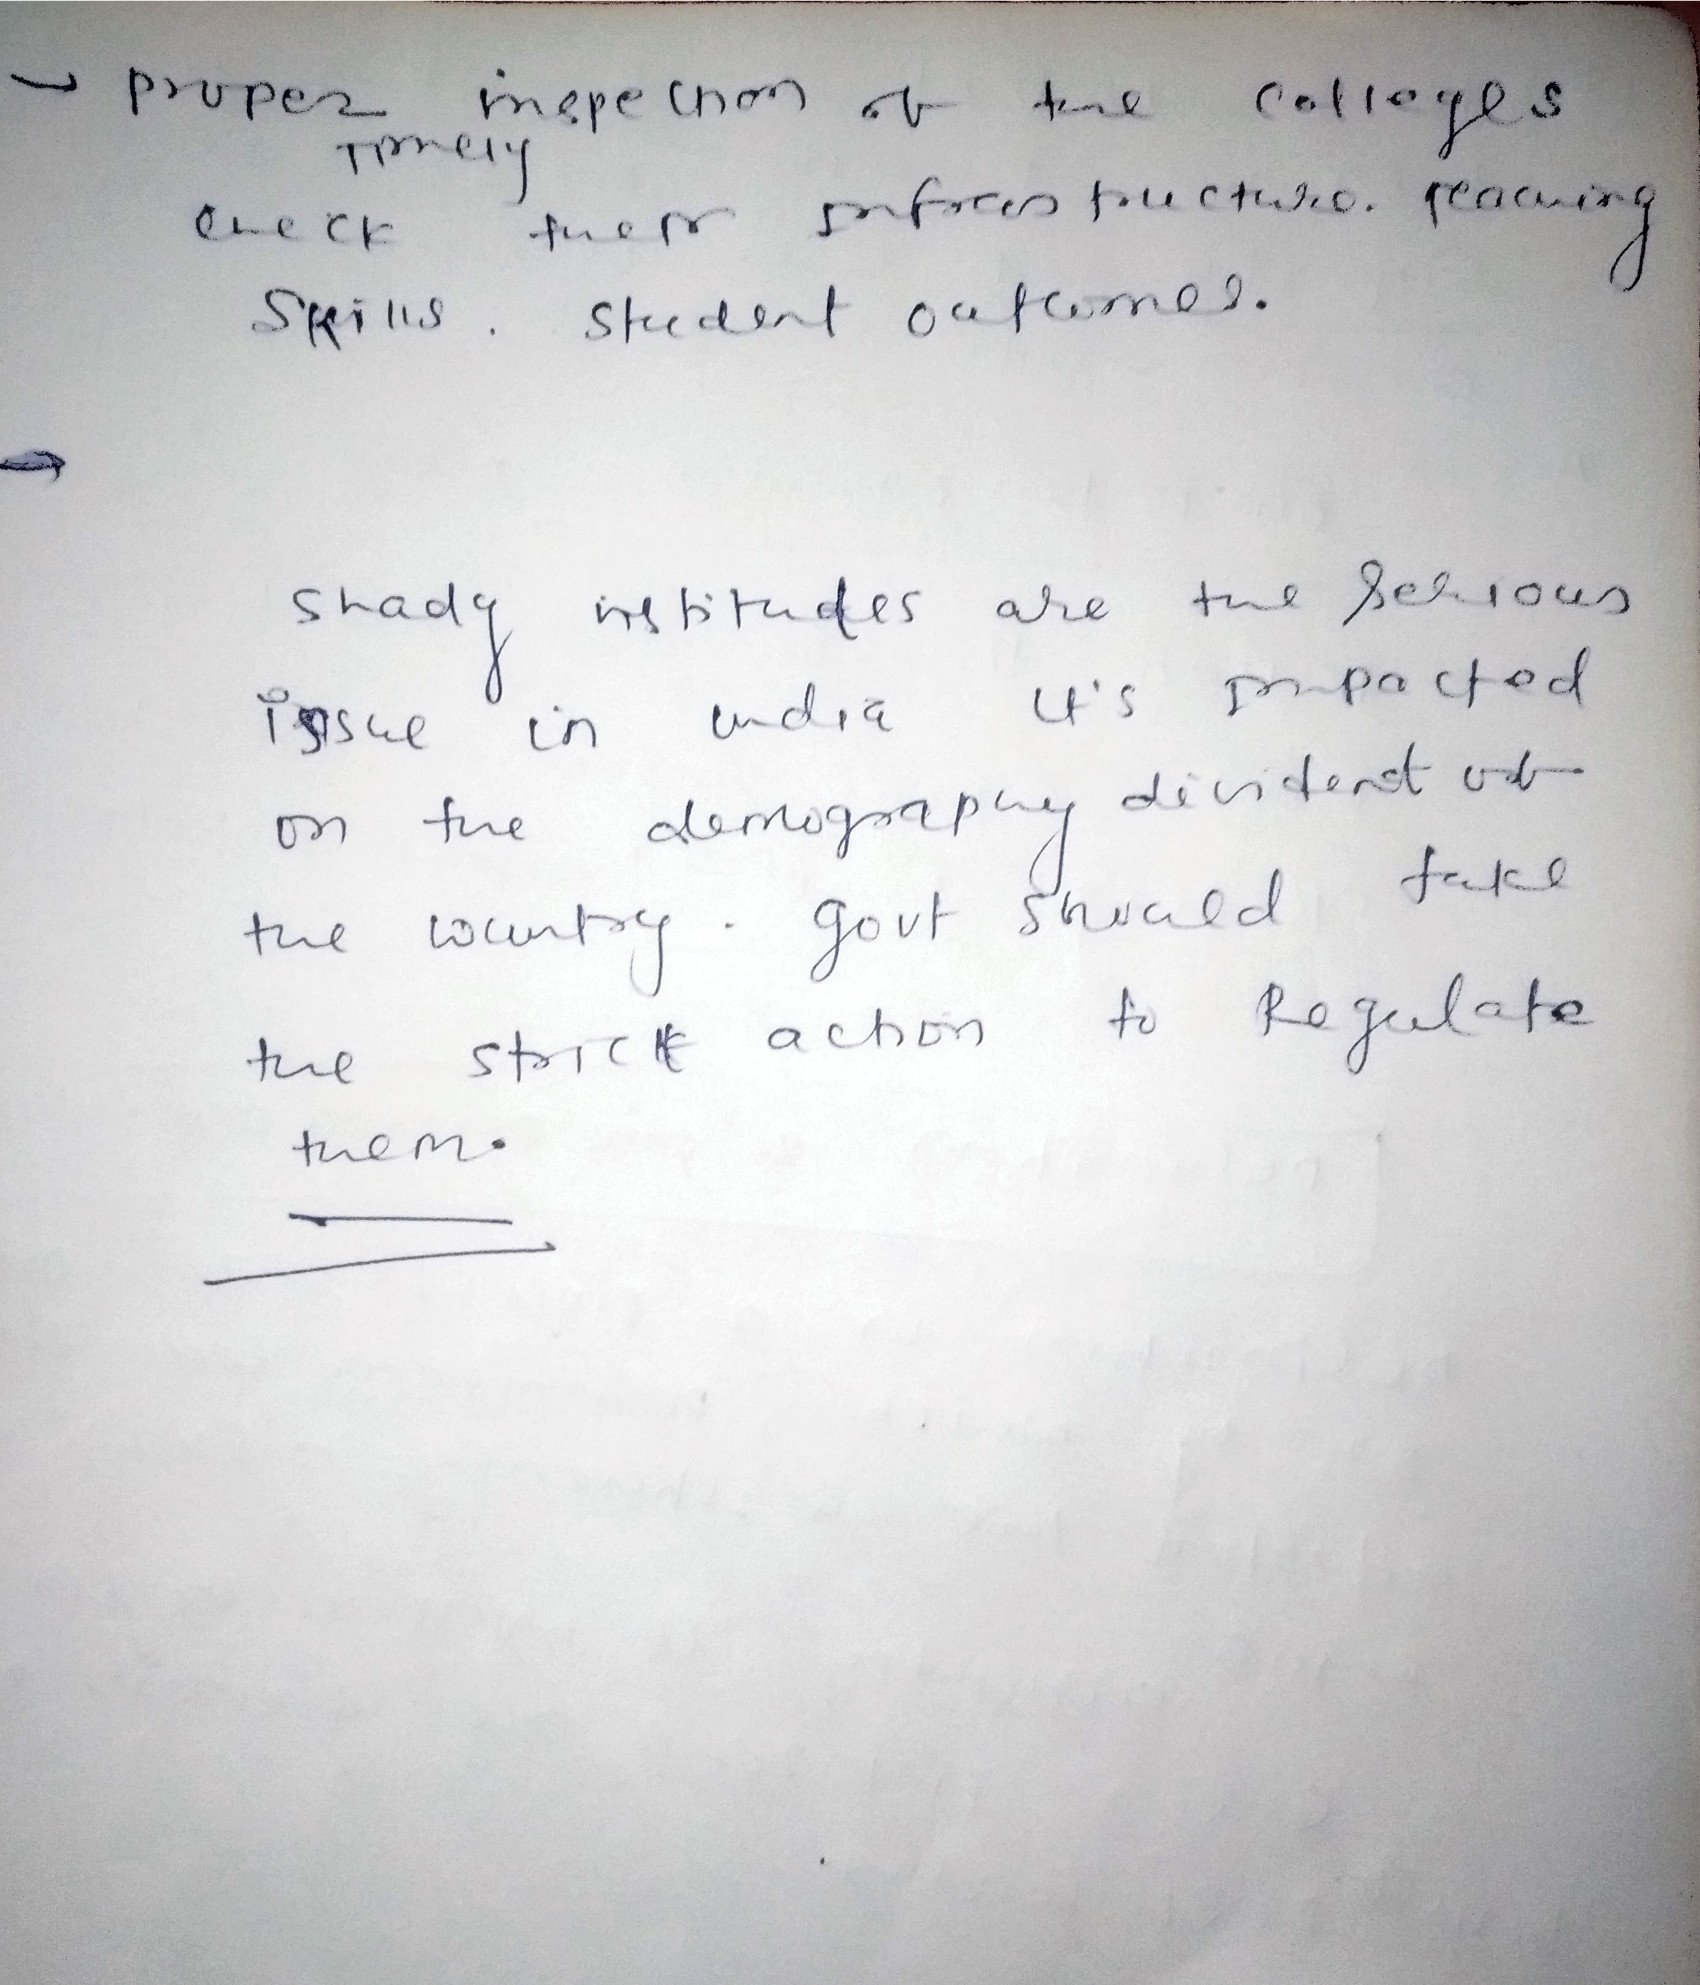 → proper inspection of the colleges
Timely
check their infrastructure. teaching
Skills. student outcomes.
→
shady institudes are the serious
issue in india it's impacted
on the demography divident of
the country. govt should take
the strick action to Regulate
them.